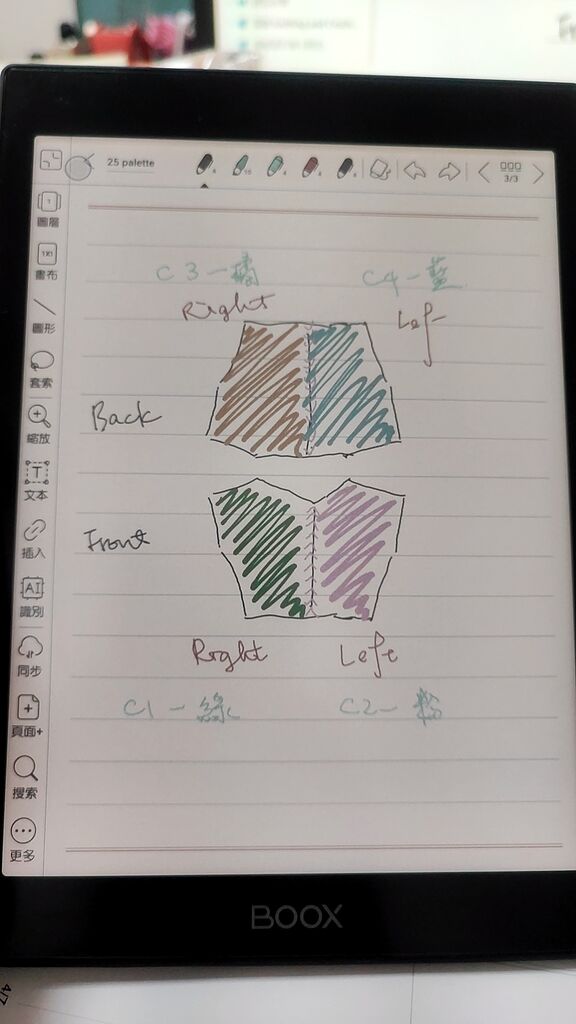 25 palette
3/3
圖層
畫布
圖形
套索
縮放
文本
插入
AI
識別
同步
頁面+
搜索
更多
C3-橘 C4-藍
Right Left
Back
Front
Right Left
C1-綠 C2-粉
BOOX
4/7